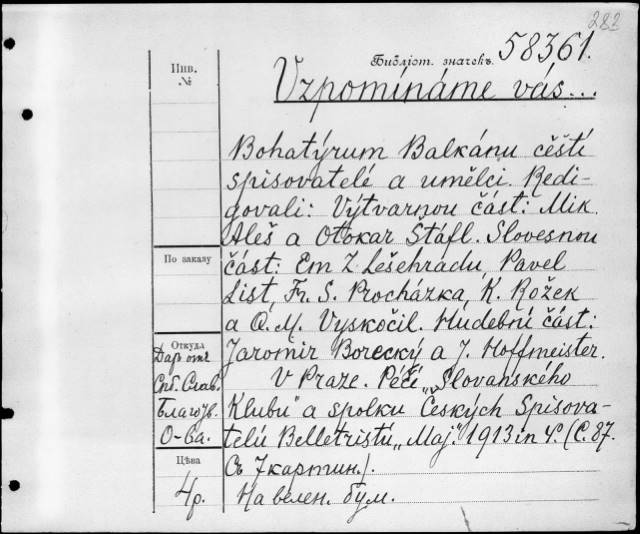 282
Библіот. значекъ 58361.
Инв.
№
Vzpomínáme vás...
Bohatýrum Balkánu čěští
spisovatelé a umělci. Redi-
govali: Výtvarnou část: Mik.
Aleš a Otokar Štáfl. Slovesnou
По заказу
část: Em. Z. Lešehradu, Pavel
List, Fr. S. Procházka, K. Rožek
a Q. M. Vyskočil. Hudební část:
Откуда
Jaromír Borecký a J. Hoffmeister.
Даръ отъ
Спб. Слав.
Благотв.
О-ва.
V Praze. Péčí „Slovanského
Klubu" a spolku Českých Spisova-
telú Belletristú „Maj". 1913 in 4°. (C. 87.
Цѣна
съ 7 картин.).
4р.
На велен. бум.